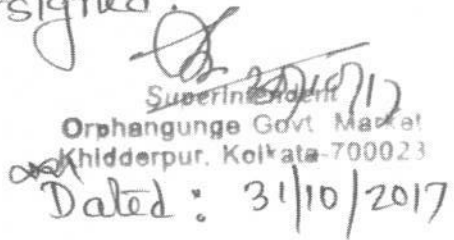 signed.
Superintendent
Orphangunge Govt Market
Khidderpur, Kolkata-700023
Dated : 31/10/2017